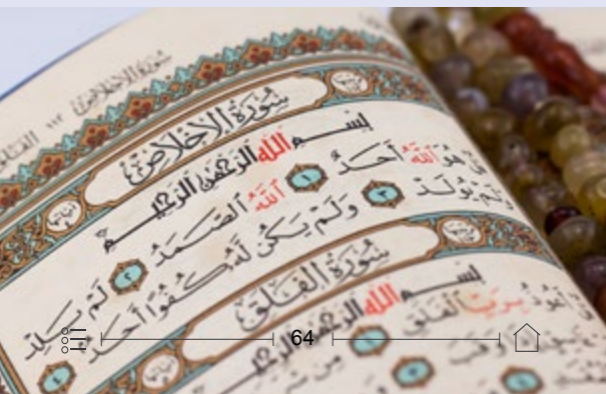 سُورَةُ الْإِخْلَاصِ ١١٢
سُورَةُ الْإِخْلَاصِ
بِسْمِ اللَّهِ الرَّحْمَٰنِ الرَّحِيمِ
قُلْ هُوَ اللَّهُ أَحَدٌ ١ اللَّهُ الصَّمَدُ ٢ لَمْ يَلِدْ
وَلَمْ يُولَدْ ٣ وَلَمْ يَكُن لَّهُ كُفُوًا أَحَدٌ ٤
سُورَةُ الْفَلَقِ
بِسْمِ اللَّهِ الرَّحْمَٰنِ الرَّحِيمِ
أَعُوذُ بِرَبِّ الْفَلَقِ ١ مِن
64